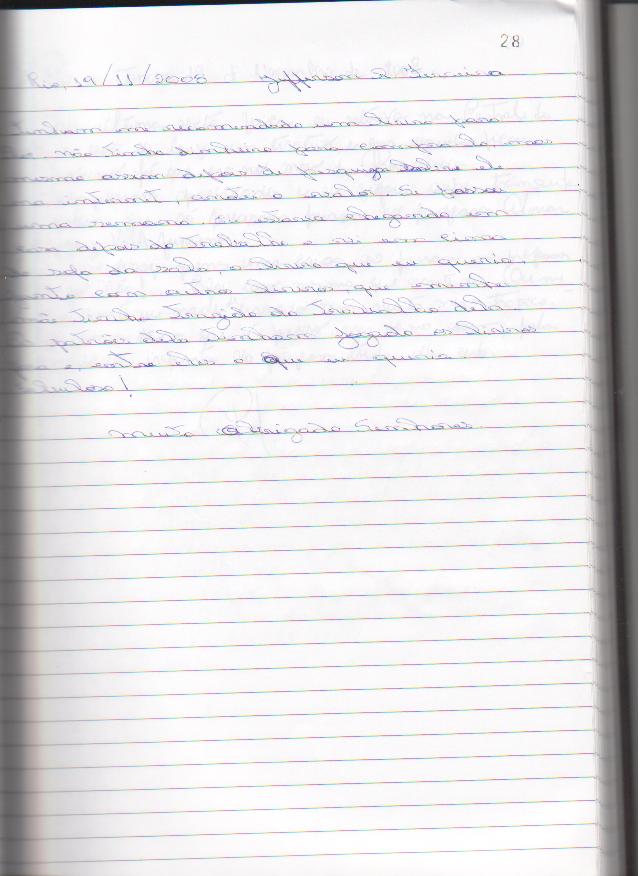 28
Rio, 19/11/2008 Jefferson
Tinham me recomendado um livro para
não tinha dinheiro para compra-lo, mas
mesmo assim depois de pesquisa sobre ele
na internet, anotei o valor. Se passou
uma semana, e estava chegando em
casa depois do trabalho e vi em cima
do sofa da sala, o livro que eu queria
junto com outros livros, que minha
mãe tinha trazido do trabalho dela.
patrões dela tinham os livros
e, entre eles o que eu queria.
!
Muito Obrigado Senhores.